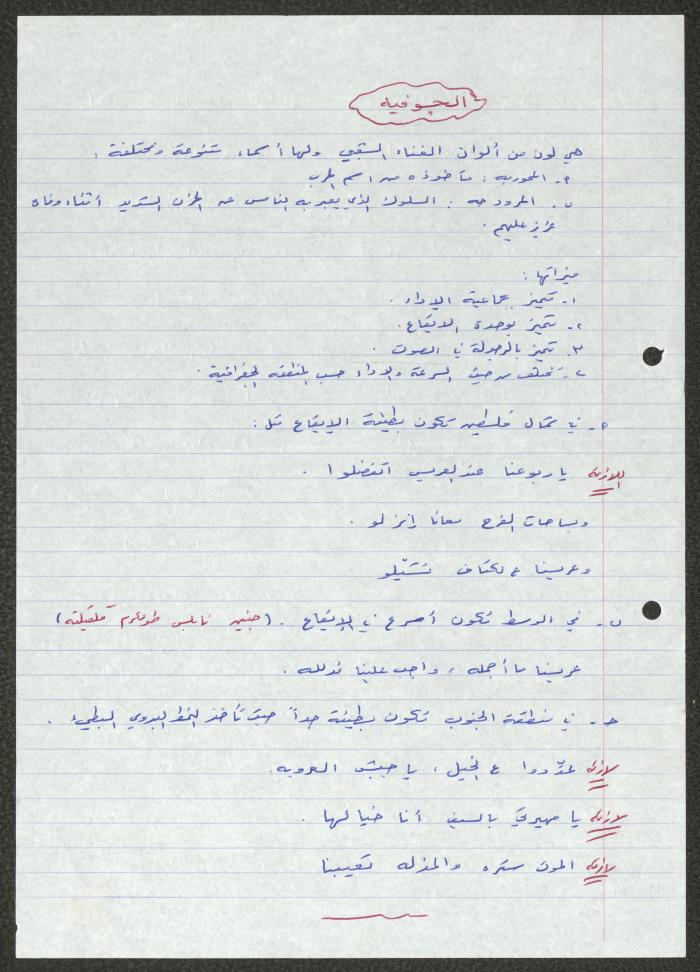 الجوفية
هي لون من ألوان الغناء الشعبي ولها أسماء متنوعة ومختلفة :
أ- المحوربه : مأخوذه من اسم الحرب
ب- المرودحه : السلوك الذي يعبر به الناس عن الحزن الشديد أثناء وفاة
عزيز عليهم .
ميزاتها :
١- تتميز بجماعية الاداء .
٢- تتميز بوحدة الايقاع .
٣- تتميز بالرجولة في الصوت .
٤- تختلف من حيث السرعة والاداء حسب المنطقه الجغرافية .
أ- في شمال فلسطين تكون بطيئة الايقاع مثل :
اللازمه يا ربوعنا عند العريس اتفضلوا .
وبساحات الفرح معانا إنزلو .
وعريسنا ع لكتاف تنشيّلو
ب- في الوسط تكون أسرع في الايقاع . (جنين نابلس طولكرم قلقيلية)
عريسنا ما أجمله ، واجب علينا ندلله .
جـ- في منطقة الجنوب تكون بطيئة جداً حيث تأخذ النمط البدوي البطيء .
لازمه عدّدوا ع الخيل ، يا جيش العروبه .
لازمه يا مهيرتي بالسيف أنا خيالها .
لازمه الموت ستره والمذله تعيبنا